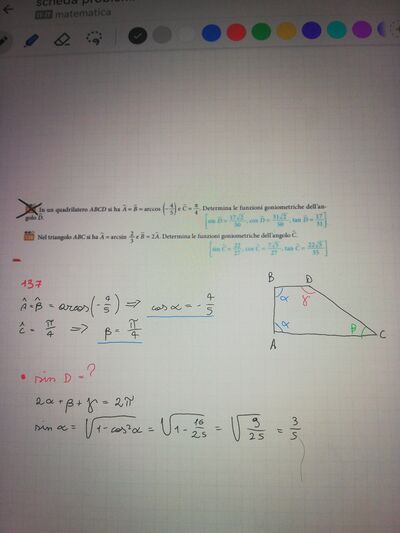 scheda problem
matematica
In un quadrilatero ABCD si ha Â = B̂ = arccos (-4/5) e Ĉ = π/4. Determina le funzioni goniometriche dell'an-
golo D̂.
[sin D̂ = 17√2/50, cos D̂ = 31√2/50, tan D̂ = 17/31]
Nel triangolo ABC si ha Â = arcsin 2/3 e B̂ = 2Â. Determina le funzioni goniometriche dell'angolo Ĉ.
[sin Ĉ = 22/27, cos Ĉ = 7√5/27, tan Ĉ = 22√5/35]
137
Â = B̂ = arcos(-4/5) ⇒ cos α = -4/5
Ĉ = π/4 ⇒ β = π/4
B D
α γ
α β
A C
• sin D = ?
2α + β + γ = 2π
sin α = √1-cos²α = √1-16/25 = √9/25 = 3/5